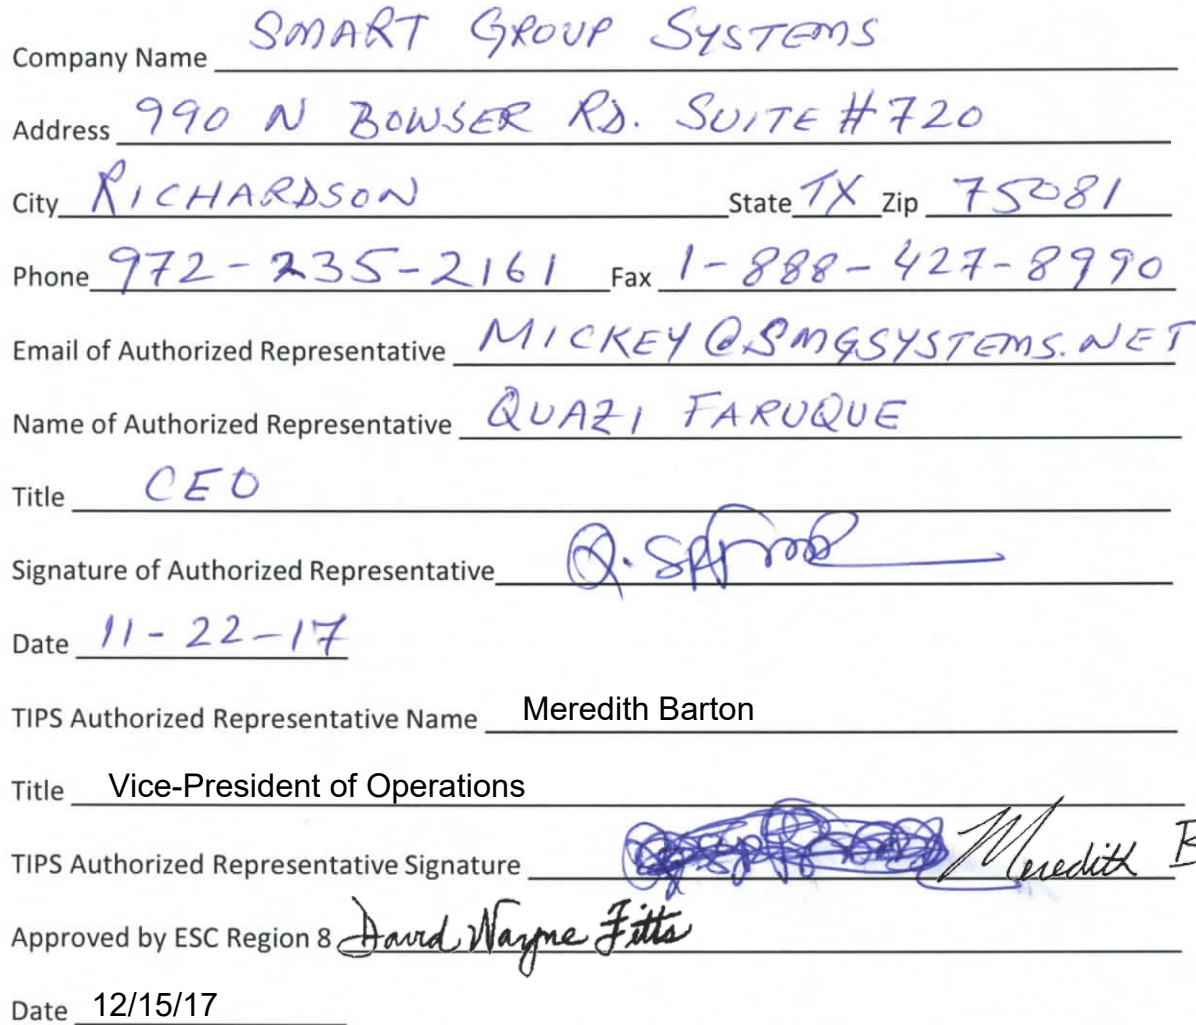 Company Name SMART GROUP SYSTEMS
Address 990 N BOWSER RD. SUITE #720
City RICHARDSON State TX Zip 75081
Phone 972-235-2161 Fax 1-888-427-8990
Email of Authorized Representative MICKEY@SMGSYSTEMS.NET
Name of Authorized Representative QUAZI FARUQUE
Title CEO
Signature of Authorized Representative Q.
Date 11-22-17
TIPS Authorized Representative Name Meredith Barton
Title Vice-President of Operations
TIPS Authorized Representative Signature Meredith B
Approved by ESC Region 8 David Wayne Fitts
Date 12/15/17